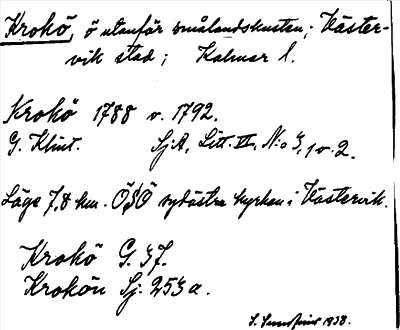 Krokö, ö utanför smålandskusten; Väster-
vik stad; Kalmar l.
Krokö 1788 v. 1792.
G. Klint. SjA, Litt. VI, N:o 3, 1 o. 2.
Läge 7,8 km. ÖSÖ sydöstra kyrkan i Västervik.
Krokö G. 37.
Krokön Sj. 253 a.
S. 1938.